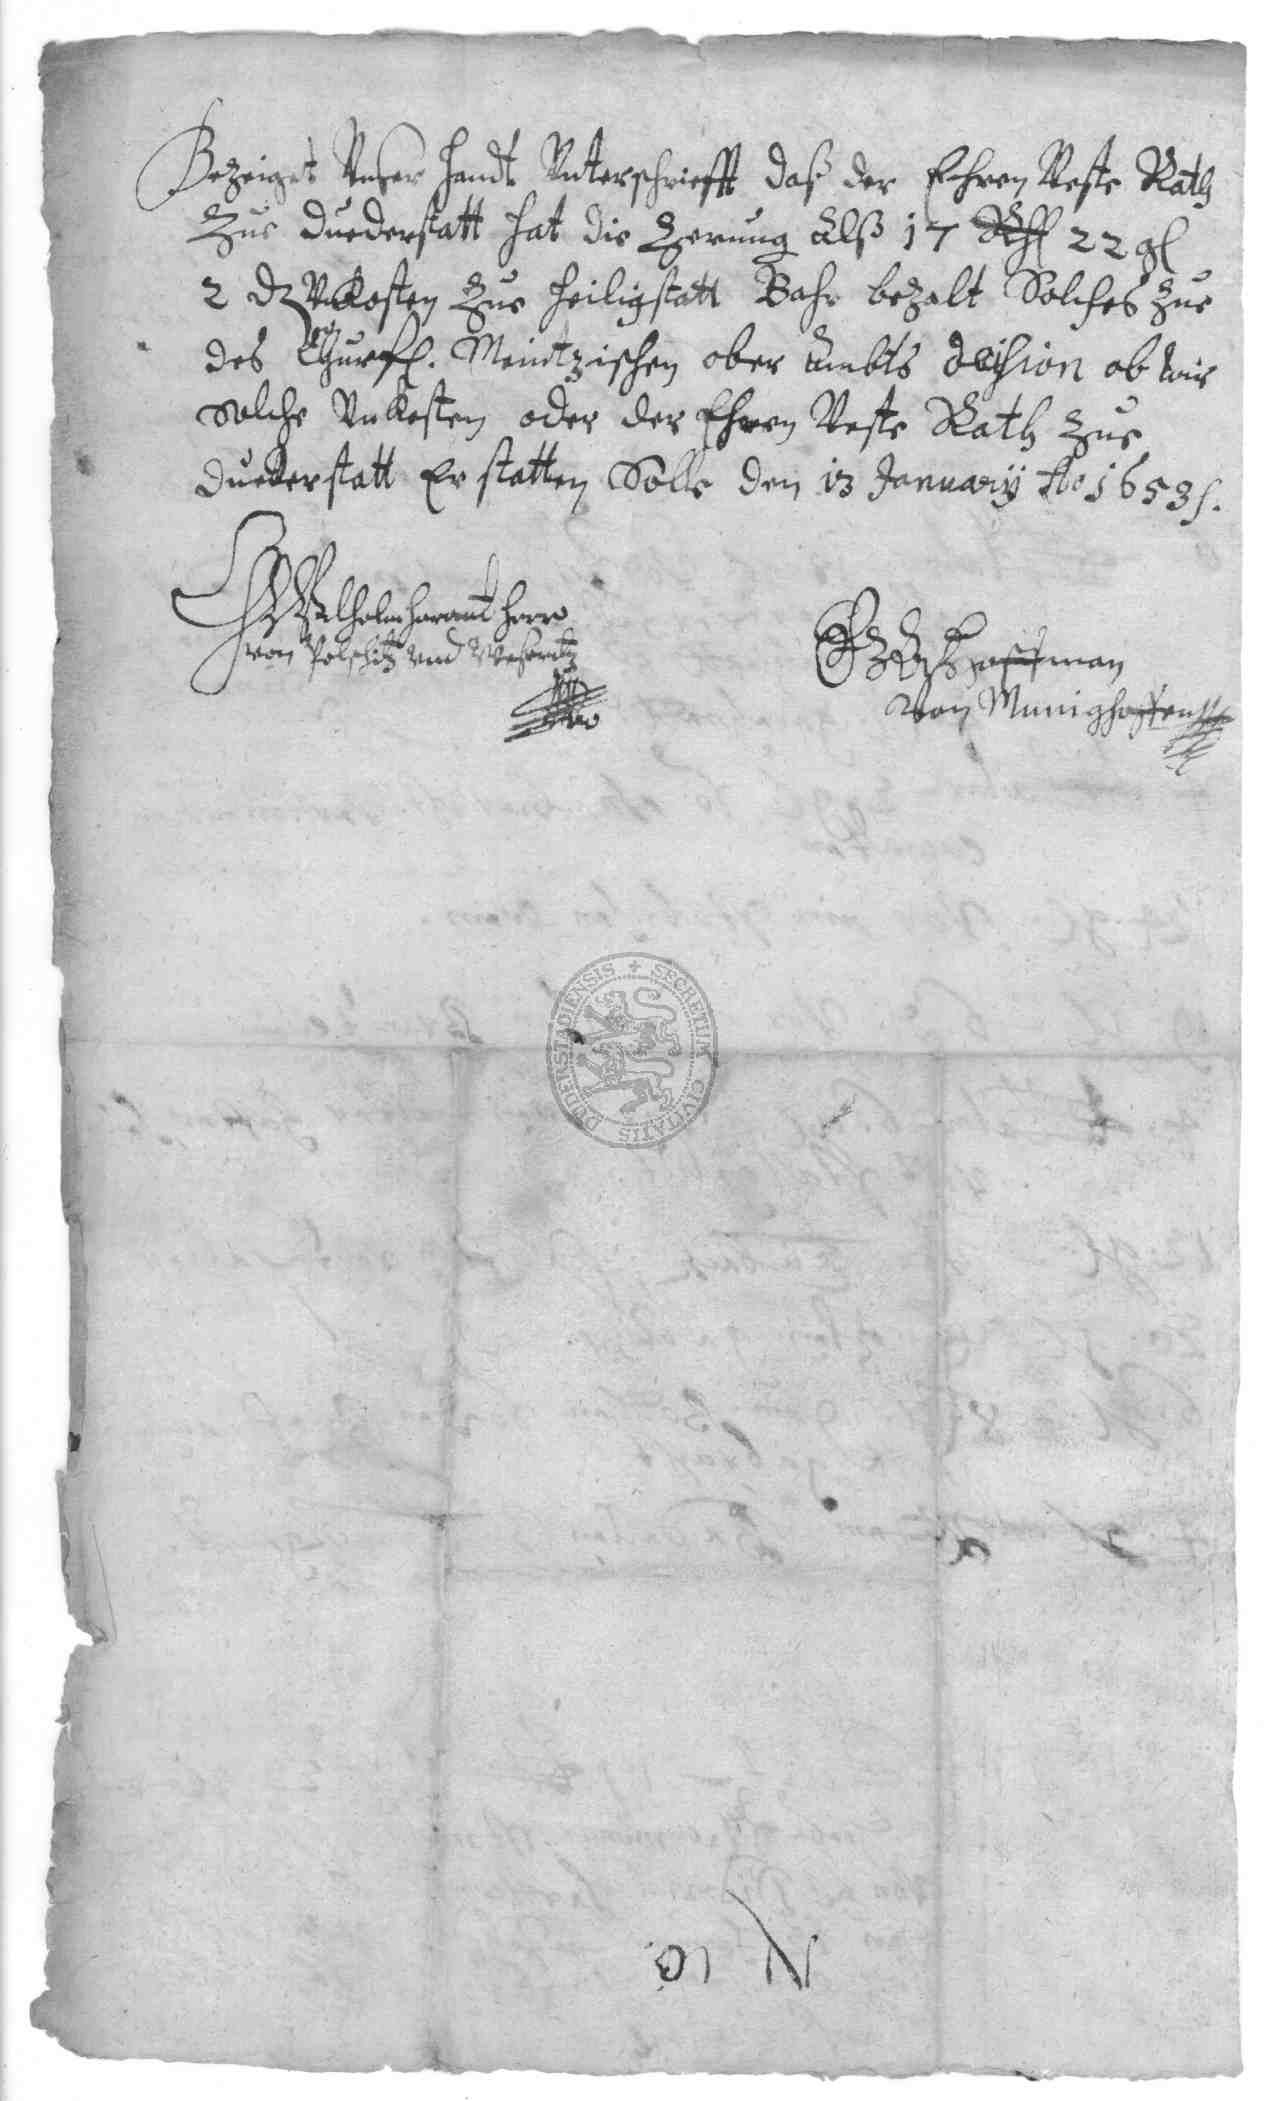 Bezeiget Vnser Handt Vnterschriefft daß der Ehren Veste Rath
Zue Duederstatt hat die Zerung Alß 17 Rthl 22 gl
2 d Vnkosten Zue Heiligstatt Bahr bezalt Solches Zue
des Churfl. Meintzischen ober Ambts decision ob wir
Solche Vnkosten oder der Ehren Veste Rath Zue
Duederstatt Er statten Solle den 13 January Ao 1653
Wilhelm Harant Herr
von Polschitz vnd Weseritz
Hoffman
Von Munighoffen
SECRETUM CIVITATIS DUDERSTADIENSIS